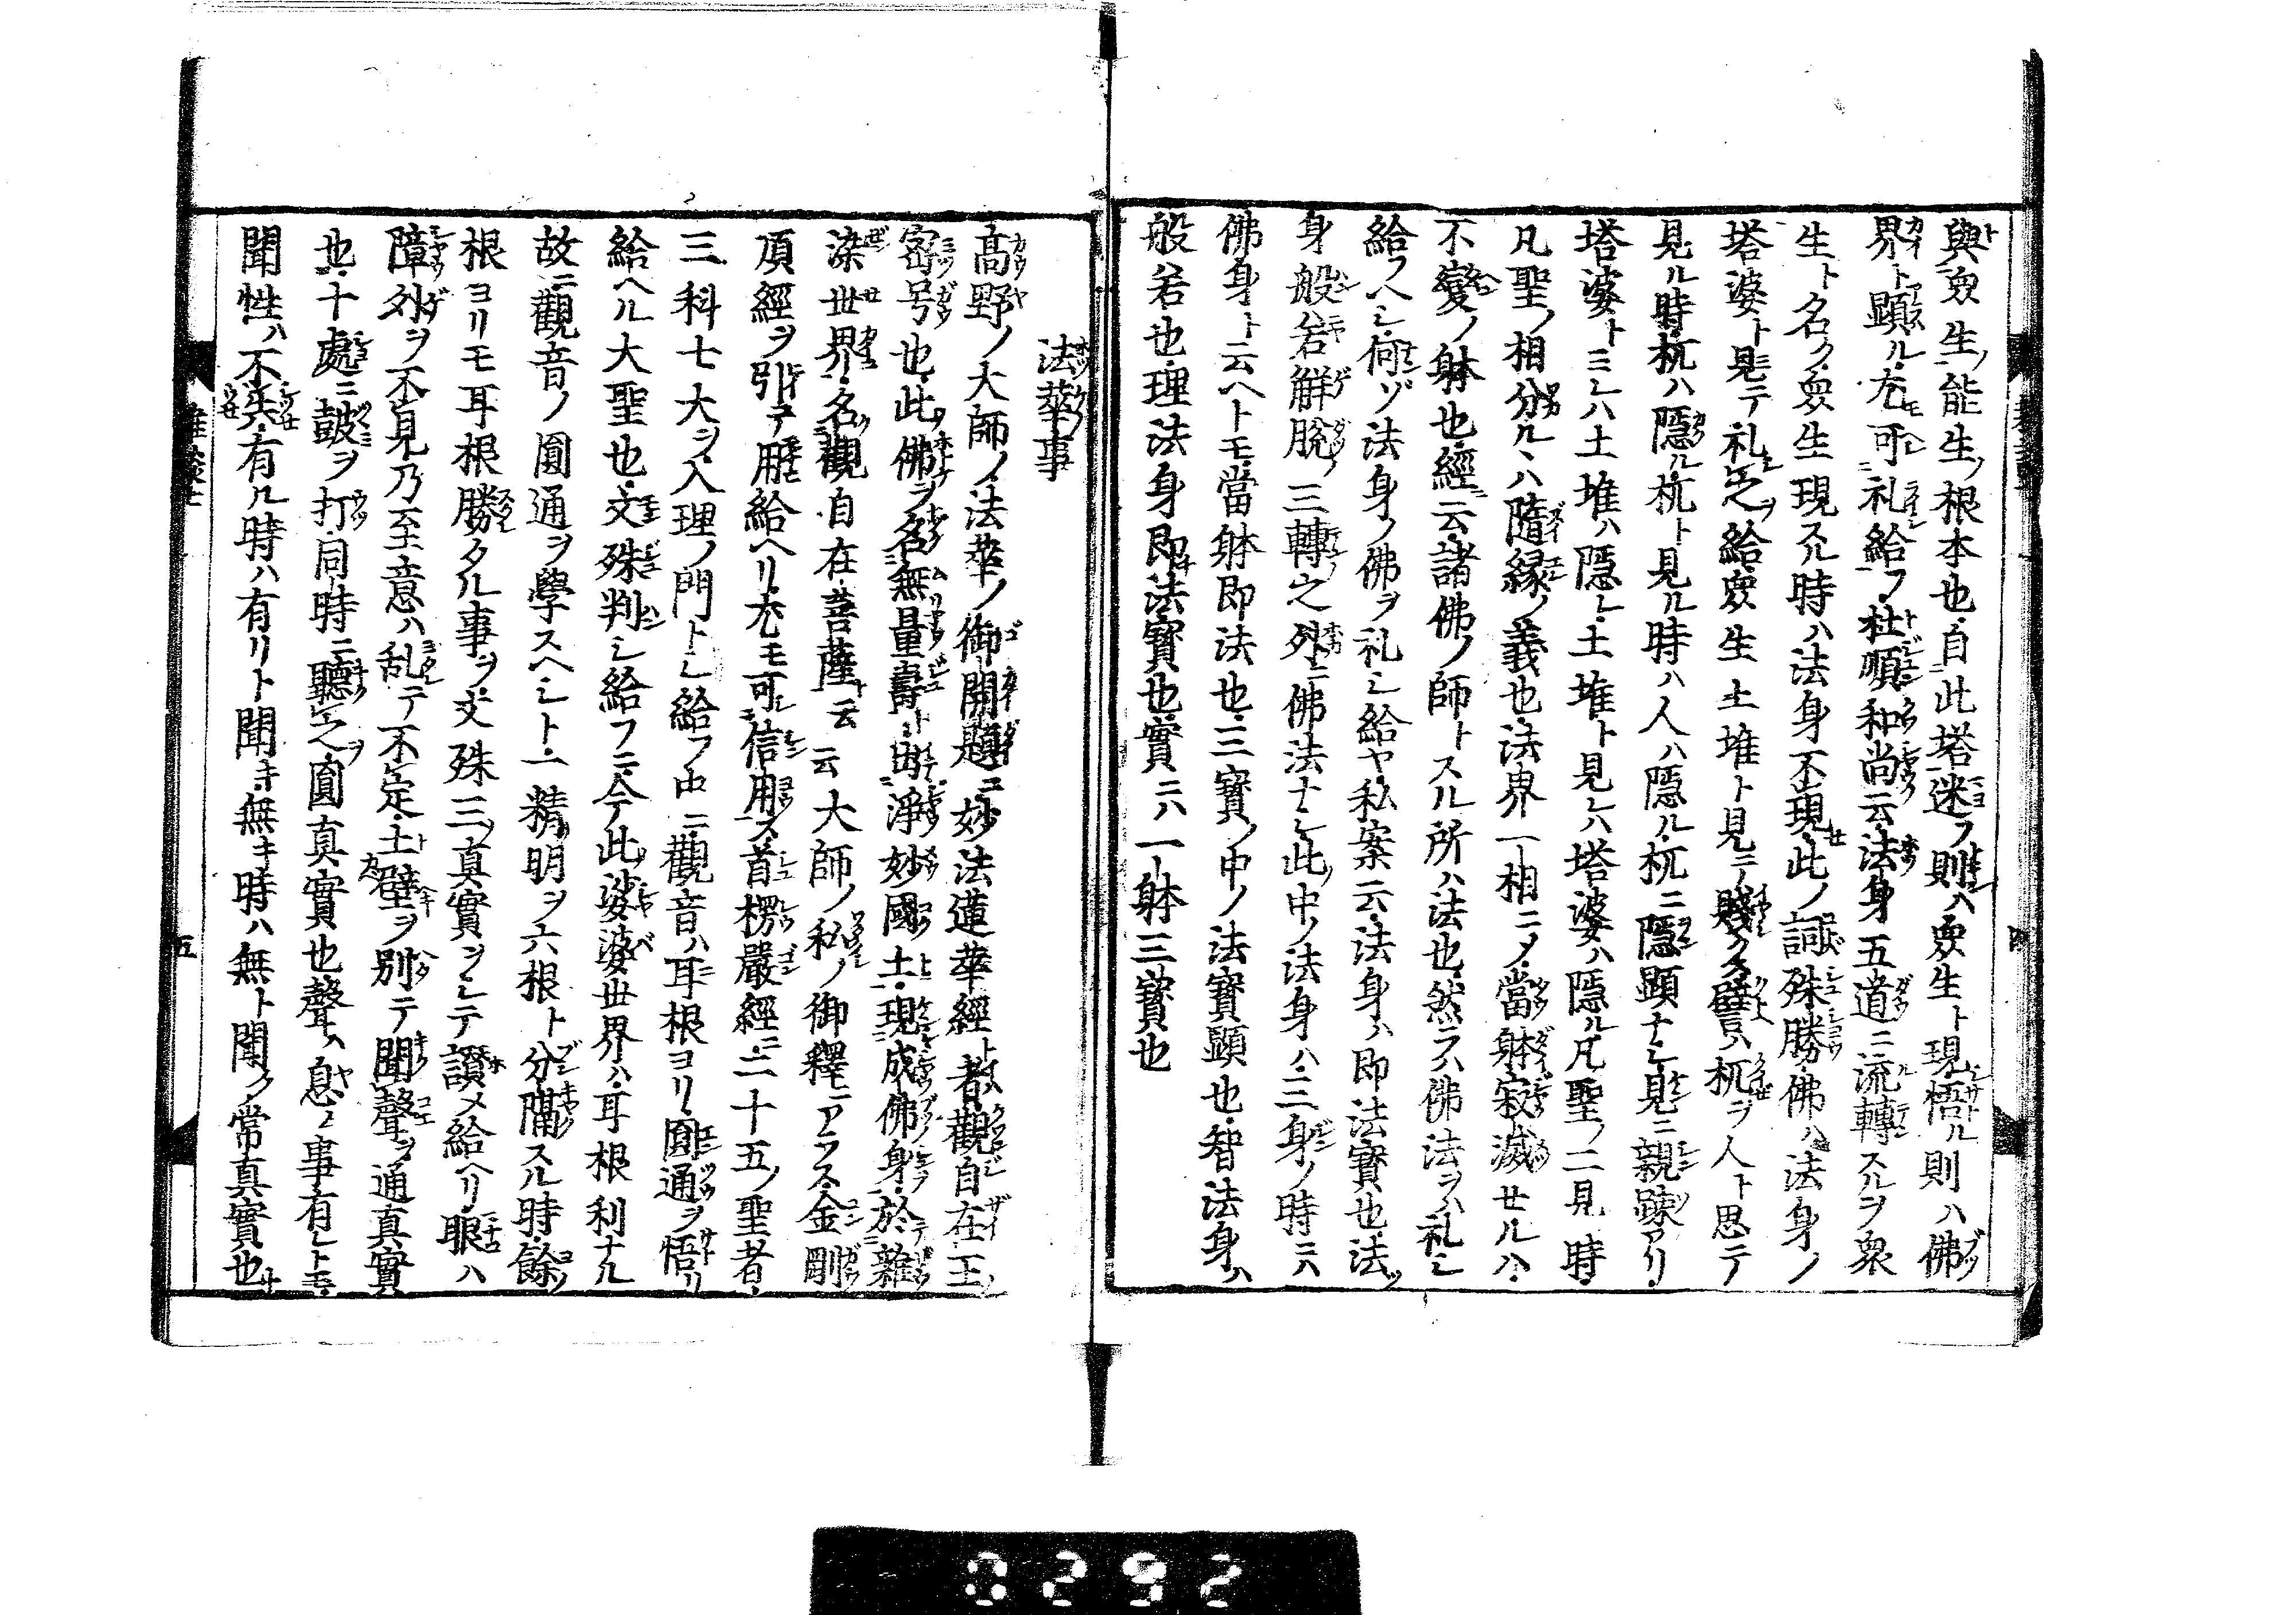 與衆生ノ能生ノ根本也自此塔迷フ則ハ衆生ト現悟ル則ハ佛
界ト顯ル尤可礼給フ杜順和尚云法身五道ニ流轉スルヲ衆
生ト名ク衆生現スル時ハ法身不現此ノ詞殊勝佛ハ法身ノ
塔婆ト見テ礼之給衆生土堆ト見テ賤ク譬ハ杌ヲ人ト思テ
見ル時杭ハ隱ル杭ト見ル時ハ人ハ隱ル杌ニ隱顯ナシ見ニ親疎アリ
塔婆トミレハ土堆ハ隱レ土堆ト見レハ塔婆ハ隱ル凡聖ノ二見時
凡聖ノ相分ルヽハ隨縁ノ義也法界一相ニメ當躰寂滅セルハ
不變ノ躰也經云諸佛ノ師トスル所ハ法也然ラハ佛法ヲハ礼シ
給フヘシ何ゾ法身ノ佛ヲ礼シ給ヤ私案云法身ハ即法寳也法
身般若解脱ノ三轉之外ニ佛法ナシ此中ノ法身ハ三身ノ時ニハ
佛身ト云ヘトモ當躰即法也三寳ノ中ノ法寳顯也智法身ハ
般若也理法身即法寳也實ニハ一躰三寳也
法華事
高野ノ大師ノ法華ノ御開題ニ妙法蓮華經者觀自在王ノ
密号也此佛ヲ名無量壽ト出淨妙國土現成佛身於雜
染世界名觀自在菩薩云云大師ノ私ノ御釋ニアラス金剛
頂經ヲ引テ用給ヘリ尤モ可信用ス首楞嚴經ニ二十五ノ聖者
三科七大ヲ入理ノ門トシ給フ中ニ觀音ハ耳根ヨリ圓通ヲ悟リ
給ヘル大聖也文殊判シ給フニ今此娑婆世界ハ耳根利ナル
故ニ觀音ノ圓通ヲ學スヘシト一精明ヲ六根ト分隔スル時餘ノ
根ヨリモ耳根勝タル事ヲ文殊三ノ真實ヲシテ讃メ給ヘリ眼ハ
障外ヲ不見乃至意ハ乱テ不定土壁ヲ別テ聞聲ヲ通真實
也十處ニ鼓ヲ打同時ニ聽之圓真實也聲ハ息ム事有レトモ
聞性ハ不失有ル時ハ有リト聞キ無キ時ハ無ト聞ク常真實也
雜談七
五
0292